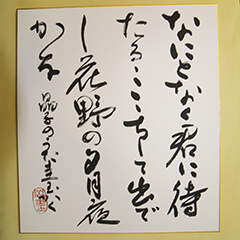 なにとなく君に待
たるゝこゝちして出で
し花野の夕月夜
かな
晶子のうた